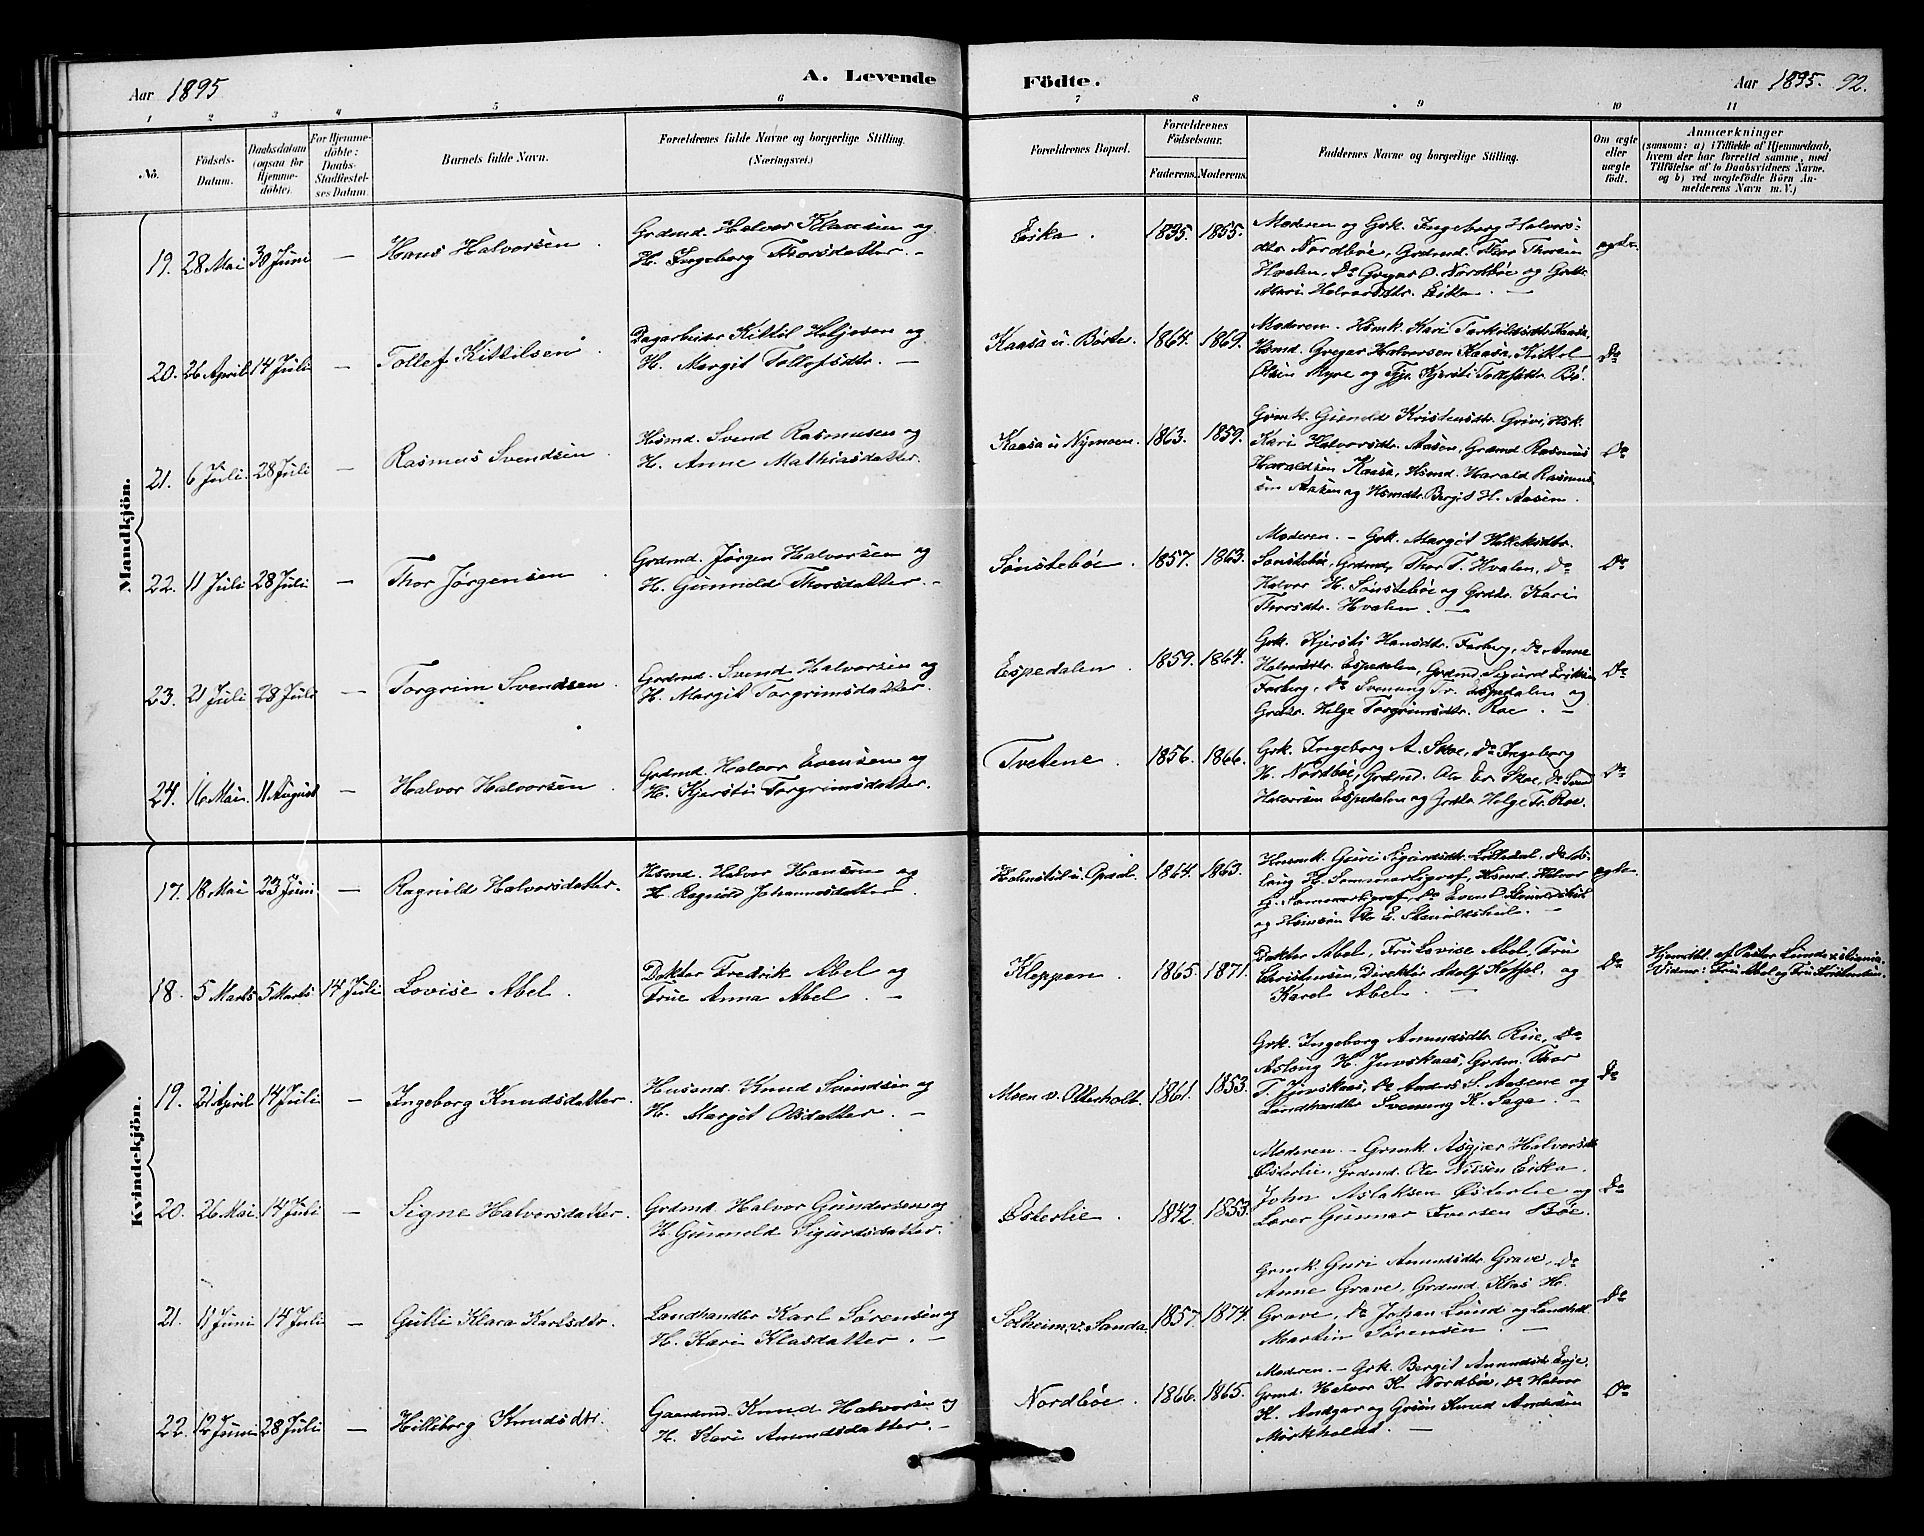 Aar 1895
A. Levende
Födte.
Aar 1895. 92.
1 2 3 4 5 6 7 8 9 10 11
No.
Födsels-
Datum.
Daabsdatum
(ogsaa for
Hjemme-
döbte).
For Hjemme-
döbte:
Daabs-
Stadfæstel-
ses Datum.
Barnets fulde Navn.
Forældrenes fulde Navne og borgerlige Stilling.
(Næringsvei.)
Forældrenes Bopæl.
Forældrenes
Födselsaar.
Faderens. Moderens.
Faddernes Navne og borgerlige Stilling.
Om ægte
eller
uægte
født.
Anmærkninger
(saasom: a) i Tilfælde af Hjemmedaab,
hvem der har forrettet samme, med
Tilföielse af to Daabsvidners Navne,
og b) ved uægtefödte Börn An-
melderens Navn m. V.)
Mandkjön.
19. 28 Mai 30 Juni — Hans Halvorsen.
Grdmd. Halvor Klausen og
H. Ingeborg Thorsdatter. –
Eika. 1835. 1855.
Moderen og Grk. Ingeborg Halvors-
dtr. Nordbøe, Grdmd. Thor Thorsen
Hvalen, Do Gregar O. Nordbøe og Grdtr.
Mari Halvorsdtr. Eika. —
ægte.
20. 26 April 14 Juli — Tollef Kittilsen.
Dagarbeider Kittil Heljesen og
H. Margit Tollefsdtr. —
Kaasa u. Børte. 1864. 1869.
Moderen. Hsmk. Kari Torkildsdtr. Kaasa,
Hsmd. Gregar Halvorsen Kaasa, Kittil
Olsen Myre og Kjersti Tollefsdtr. Bø.
Do
21. 6 Juli. 28 Juli — Rasmus Svendsen.
Hsmd. Svend Rasmusen og
H. Anne Mathiasdatter.
Kaasa u Nymoen. 1863. 1859.
Grmk. Gunild Kristensdtr. Grivi, Hsk.
Kari Halvorsdtr. Aasen, Grdmd Rasmus
Haraldsen Kaasa, Hsmd. Harald Rasmus-
sen Aasen og Hsmdtr. Bergit H. Aasen.
Do
22. 11 Juli 28 Juli — Thor Jørgensen.
Grdmd. Jørgen Halvorsen og
H. Gunnild Thorsdatter. –
Sønstebøe. 1857. 1863.
Moderen. – Grk. Margit
Sønstebø, Grdmd. Thor T. Hvalen, Do
Halvor H. Sønstebøe og Grdtr. Kari
Thorsdtr. Hvalen. —
Do
23. 21 Juli 28 Juli — Torgrim Svendsen.
Grdmd. Svend Halvorsen og
H. Margit Torgrimsdatter.
Espedalen. 1859. 1864.
Grk. Kjersti Hansdtr. Farberg, Do Anne
Halvorsdtr. Espedalen, Grdmd. Sigurd Eriksen
Farberg, Do Svenung Tr. Espedalen og
Grdtr. Helge Torgrimsdtr. Roe. –
Do
24. 16 Mai. 11 August — Halvor Halvorsen.
Grdmd. Halvor Evensen og
H. Kjersti Torgrimsdatter.
Tvetene. 1856. 1866.
Grk. Ingeborg A. Skoe, Do Ingeborg
H. Nordbøe, Grdmd. Ole Er. Skoe, Do Svend
Halvorsen Espedalen og Grdtr. Helge Tr. Roe.
Do
Kvindekjön.
17. 18 Mai 23 Juni — Ragnild Halvorsdatter.
Hsmd. Halvor Hansen og
H. Ragnild Johannesdatter.
1864. 1863.
ægte.
18. 5 Marts 5 Marts 14 Juli Lovise Abel.
Doktor Fredrik Abel og
Frue Anna Abel. —
Kleppen. 1865. 1871.
Doktor Abel, Fru Lovise Abel, Fru
Christensen, Direktør Adolf og
Karel Abel. —
Do
Hjemdbt. af Pastor Lunde
Vidner: Fru Abel og Fru Kristensen.
19. 21 April 14 Juli — Ingeborg Knudsdatter.
Husmd. Knud Svendsen og
H. Margit Olsdatter. –
Moen v. Otterholt. 1861. 1853.
Grk. Ingeborg Amundsdtr. Rue, Do
Aslaug H. Juvskaas, Grdm. Thor
T. Juvskaas, Do Anders S. Aasene og
Landhandler Svenung K. Saga. –
Do
20. 26 Mai 14 Juli — Signe Halvorsdatter.
Grdmd. Halvor Gundersen og
H. Gunneld Sigurdsdatter.
Østerlie. 1842. 1853.
Moderen. – Grmk. Asgjær Halvorsdtr.
Østerlie, Grdmd. Ole Nilsen Eika.
John Aslaksen Østerlie og
Lærer Gunnar Iversen Bøe.
Do
21. 11 Juni 14 Juli — Gulli Klara Karlsdtr.
Landhandler Karl Sørensen og
H. Kari Klasdatter. –
Solheim v. Sanda. 1857. 1874.
Grmk. Guri Amundsdtr. Grave, Do
Anne Grave, Grdmd. Klas H.
Grave, Do Johan Lund og Landhdl.
Martin Sørensen. —
Do
22. 12 Juni 28 Juli — Hilleborg Knudsdtr.
Gaardmd. Knud Halvorsen og
H. Kari Amundsdatter. –
Nordbøe. 1866. 1865.
Moderen. – Grk. Bergit Amundsdtr.
Grmd. Halvor K. Nordbøe, Do Halvor
H. og Knud Andersen
Mørkhold. —
Do